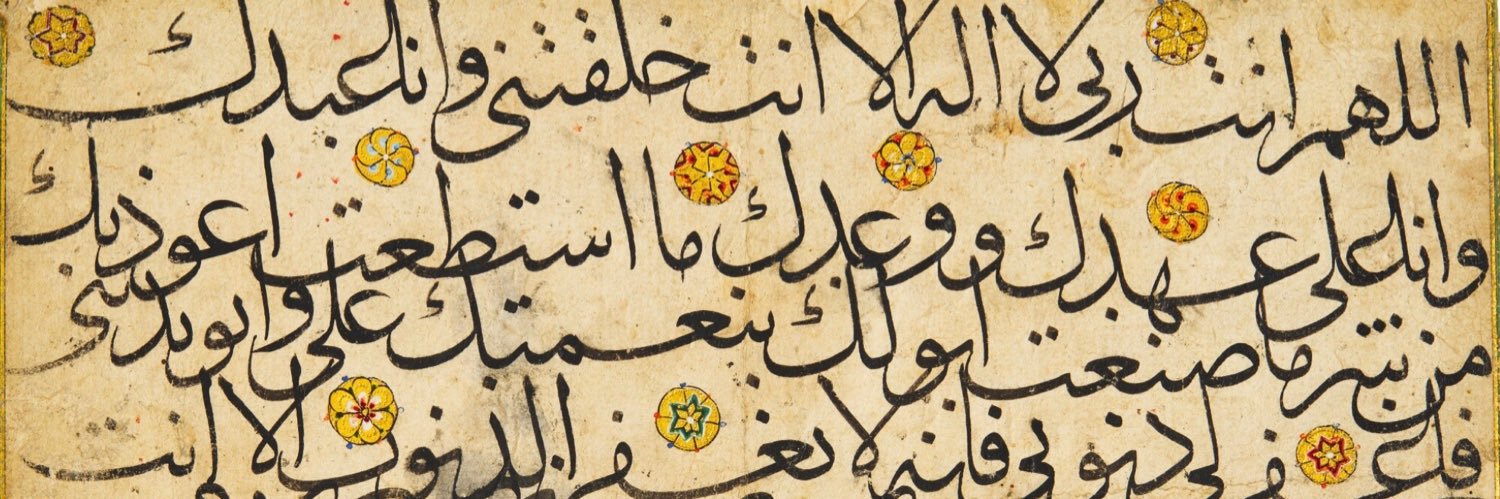 اللهم انت ربي لا اله الا انت خلقتنى وانا عبدك
وانا على عهدك ووعدك ما استطعت اعوذ بك
من شر ما صنعت ابو لك بنعمتك على وابو بذنبى
فاغفر لى ذنوبى فانه لا يغفر الذنوب الا انت